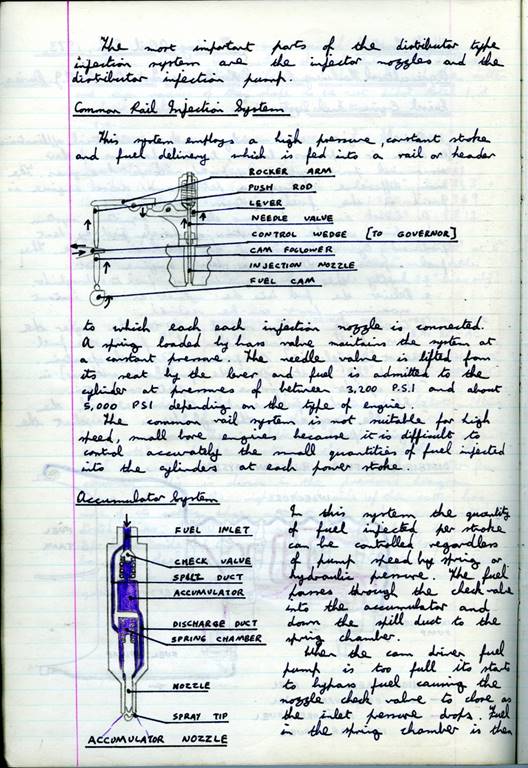 The most important parts of the distributor type
injection system are the injector nozzles and the
distributor injection pump.
Common Rail Injection System
This system employs a high pressure, constant stroke
and fuel delivery which is fed into a rail or header
ROCKER ARM
PUSH ROD
LEVER
NEEDLE VALVE
CONTROL WEDGE [TO GOVERNOR]
CAM FOLLOWER
INJECTION NOZZLE
FUEL CAM
to which each each injection nozzle is connected.
A spring loaded by hass valve maintains the system at
a constant pressure. The needle valve is lifted from
its seat by the lever and fuel is admitted to the
cylinder at pressures of between 3,200 P.S.I and about
5,000 PSI depending on the type of engine.
The common rail system is not suitable for high
speed, small bore engines because it is difficult to
control accurately the small quantities of fuel injected
into the cylinders at each power stroke.
Accumulator System
FUEL INLET
CHECK VALVE
SPILL DUCT
ACCUMULATOR
DISCHARGE DUCT
SPRING CHAMBER
NOZZLE
SPRAY TIP
ACCUMULATOR NOZZLE
In this system the quantity
of fuel injected per stroke
can be controlled regardless
of pump speed by spring or
hydraulic pressure. The fuel
passes through the check valve
into the accumulator and
down the spill duct to the
spring chamber.
When the cam driver fuel
pump is too full its starts
to bypass fuel causing the
nozzle check valve to close as
the inlet pressure drops. Fuel
in the spring chamber is then